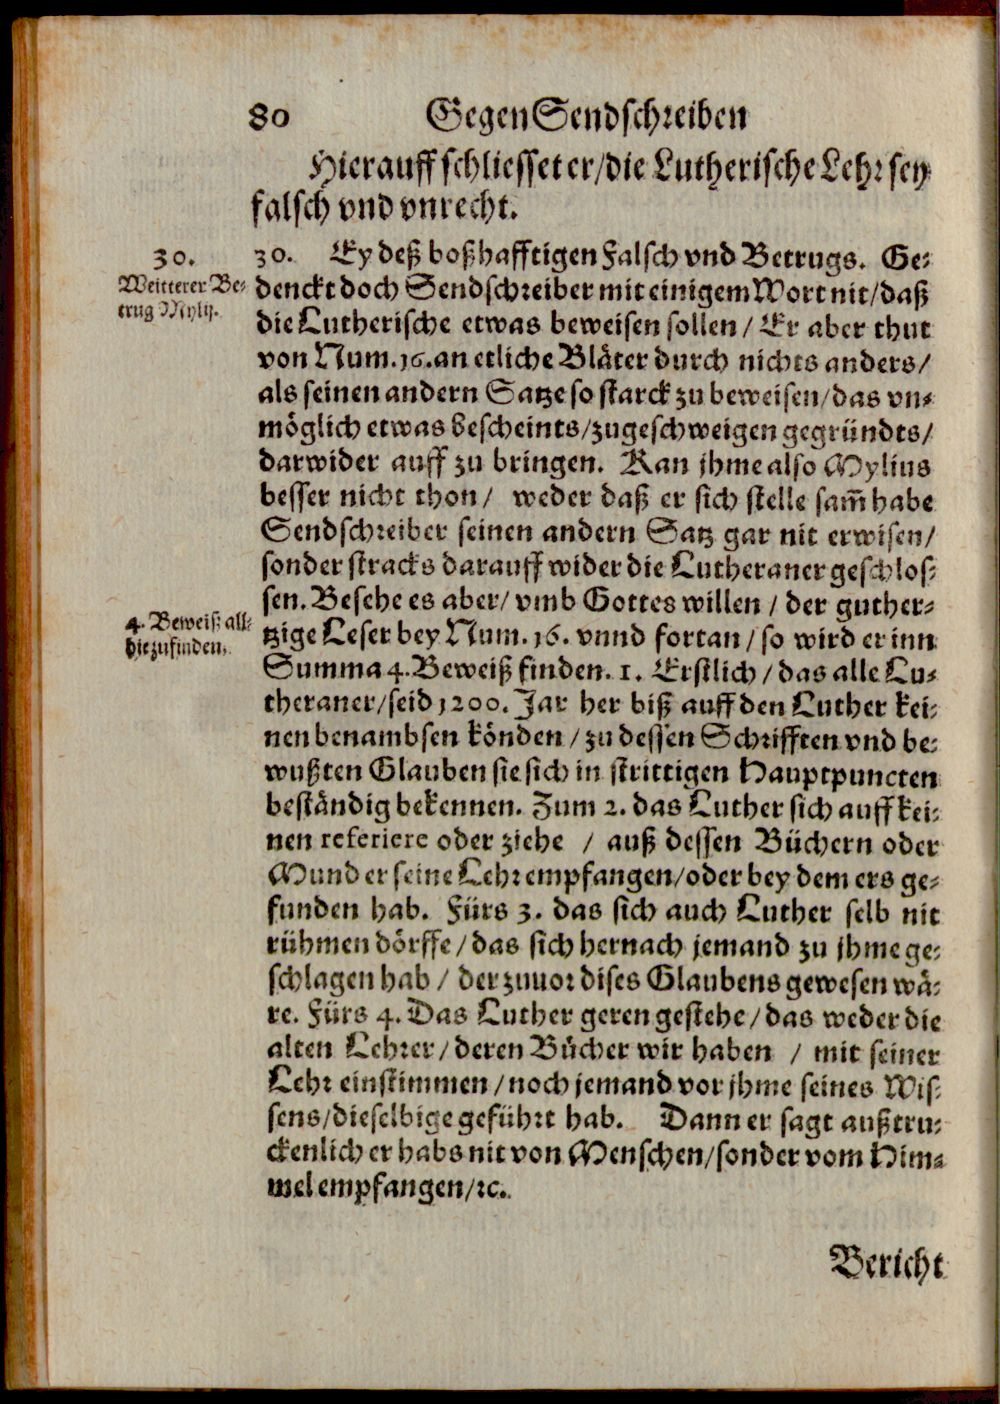 80 GegenSendschreiben
Hierauff schliesset er/die Lutherische Lehr sey
falsch vnd vnrecht.
30.
Weitterer Be-
trug Mylij.
30. Ey deß boßhafftigen Falsch vnd Betrugs. Ge-
denckt doch Sendschreiber mit einigem Wort nit/daß
die Lutherische etwas beweisen sollen / Er aber thut
von Num. 16. an etliche Bläter durch nichts anders/
als seinen andern Satze so starck zu beweisen/das vn-
möglich etwas bescheints/zugeschweigen gegründts/
darwider auff zu bringen. Kan jhme also Mylius
besser nicht thon/ weder daß er sich stelle sam̃ habe
Sendschreiber seinen andern Satz gar nit erwisen/
sonder stracks darauff wider die Lutheraner geschlos-
sen. Besehe es aber/ vmb Gottes willen / der guther-
4. Beweiß all-
hie zufinden.
tzige Leser bey Num. 16. vnnd fortan / so wird er inn
Summa 4. Beweiß finden. 1. Erstlich / das alle Lu-
theraner/seid 1200. Jar her biß auff den Luther kei-
nen benambsen könden / zu dessen Schrifften vnd be-
wußten Glauben sie sich in strittigen Hauptpuncten
beständig bekennen. Zum 2. das Luther sich auff kei-
nen referiere oder ziehe / auß dessen Büchern oder
Mund er seine Lehr empfangen/oder bey dem ers ge-
funden hab. Fürs 3. das sich auch Luther selb nit
rühmen dörffe / das sich hernach jemand zu jhme ge-
schlagen hab / der zuuor dises Glaubens gewesen wä-
re. Fürs 4. Das Luther geren gestehe / das weder die
alten Lehrer / deren Bücher wir haben / mit seiner
Lehr einstimmen / noch jemand vor jhme seines Wis-
sens/dieselbige geführt hab. Dann er sagt außtru-
ckenlich er habs nit von Menschen/sonder vom Him-
mel empfangen/ꝛc.
Bericht